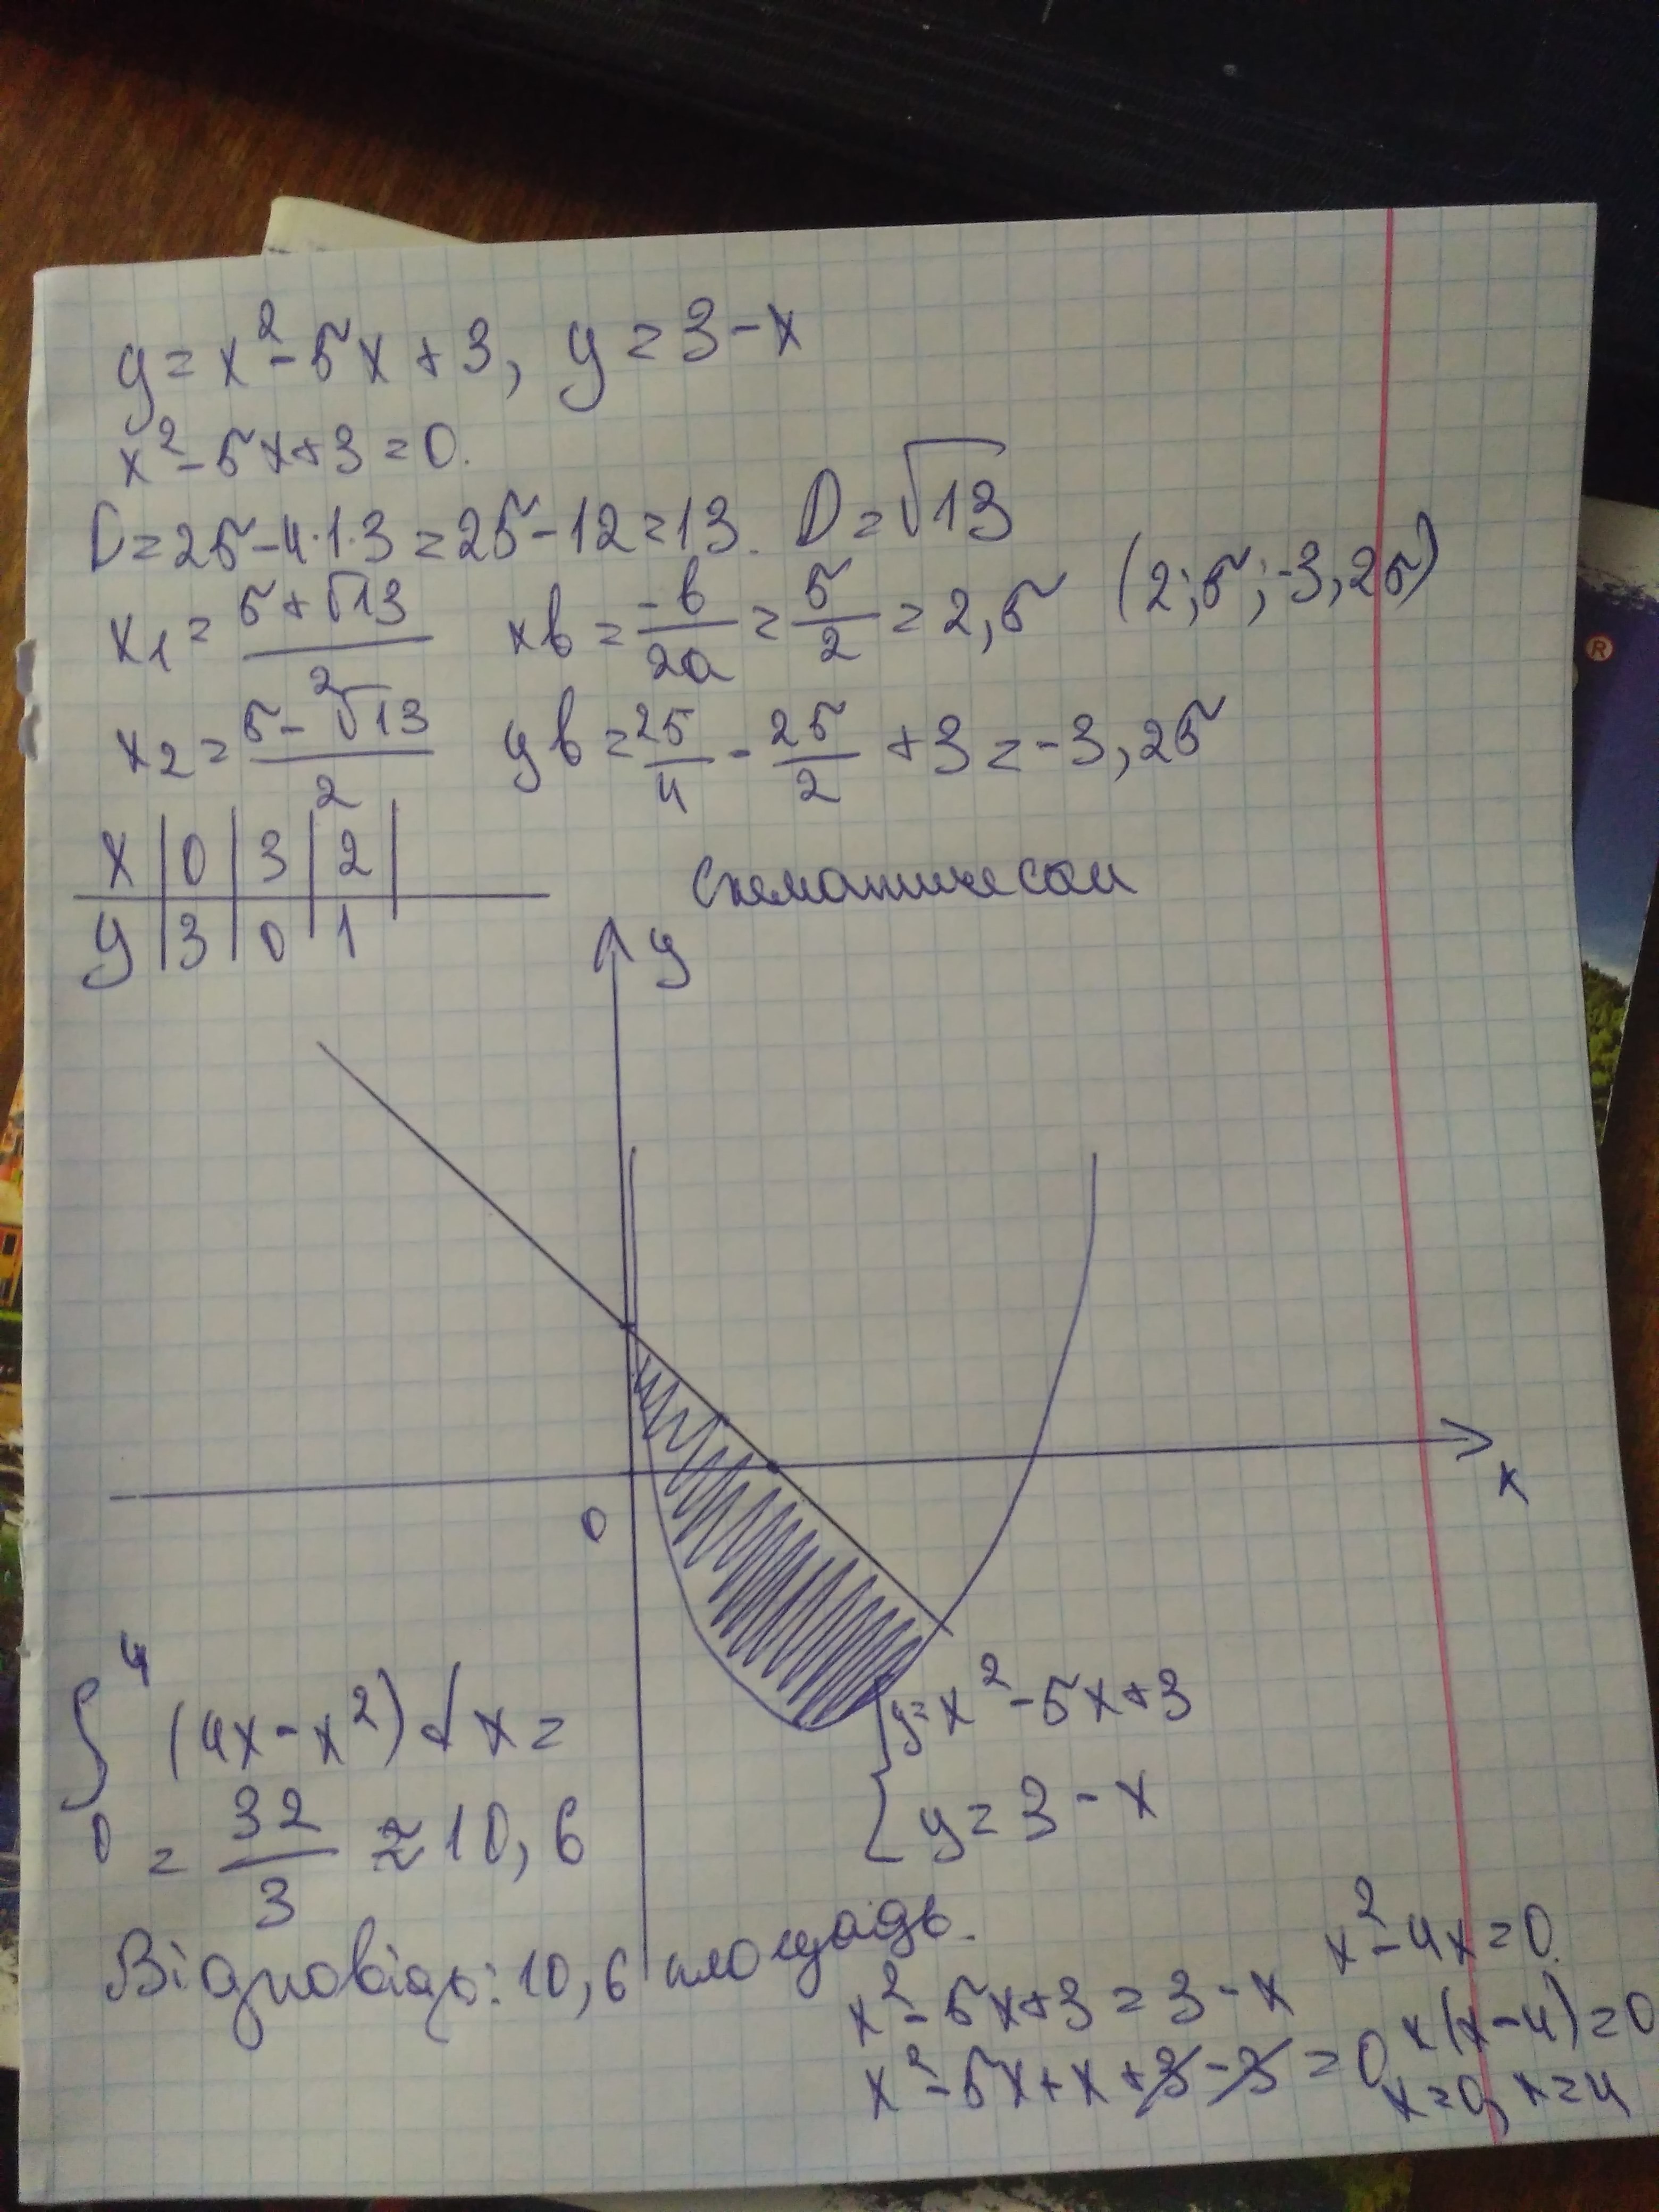 y = x² - 5x + 3, y = 3 - x
x² - 5x + 3 = 0.
D = 25 - 4·1·3 = 25 - 12 = 13. D = √13
x1 = (5 + √13)/2 xb = -b/2a = 5/2 = 2,5 (2;5; -3,25)
x2 = (5 - √13)/2 yb = 25/4 - 25/2 + 3 = -3,25
x | 0 | 3 | 2 |
y | 3 | 0 | 1
y
x
0
∫₀⁴ (4x - x²) dx =
= 32/3 ≈ 10,6
{ y = x² - 5x + 3
y = 3 - x
Відповідь: 10,6 площадь.
x² - 5x + 3 = 3 - x
x² - 5x + x + 3 - 3 = 0
x² - 4x = 0.
x(x - 4) = 0
x = 0, x = 4
®